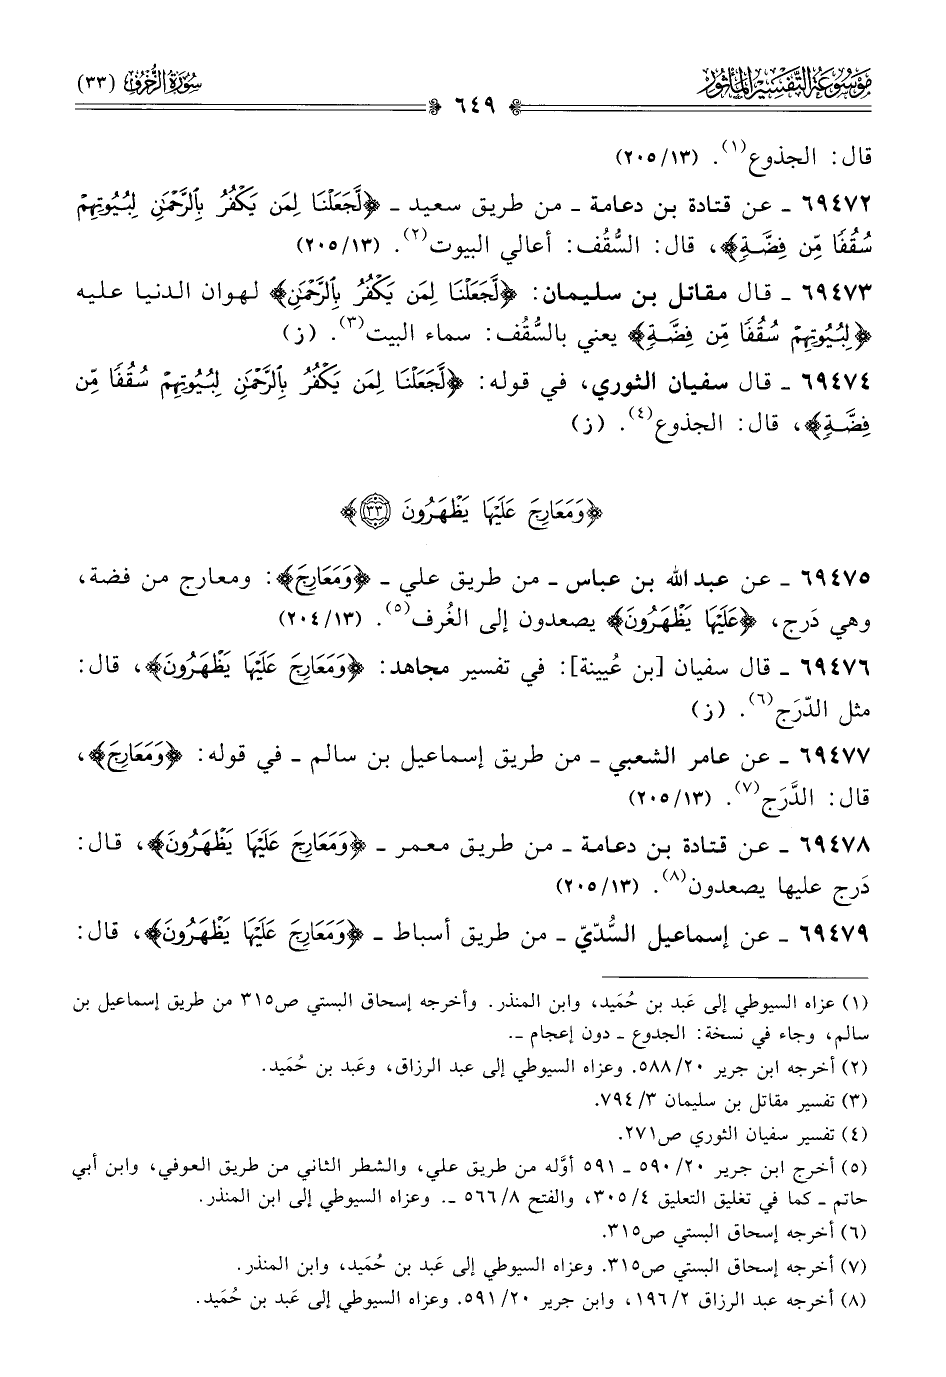 سُورَةُ الزُّخْرُفِ (٣٣)
مَوْسُوعَةُ التَّفْسِيرِ المَأْثُورِ
٦٤٩
قال: الجذوع(١). (٢٠٥/١٣)
٦٩٤٧٢ ـ عن قتادة بن دعامة ـ من طريق سعيد ـ ﴿لَّجَعَلْنَا لِمَن يَكْفُرُ بِٱلرَّحْمَٰنِ لِبُيُوتِهِمْ
سُقُفًا مِّن فِضَّةٍ﴾، قال: السُّقُف: أعالي البيوت(٢). (٢٠٥/١٣)
٦٩٤٧٣ ـ قال مقاتل بن سليمان: ﴿لَّجَعَلْنَا لِمَن يَكْفُرُ بِٱلرَّحْمَٰنِ﴾ لهوان الدنيا عليه
﴿لِبُيُوتِهِمْ سُقُفًا مِّن فِضَّةٍ﴾ يعني بالسُّقُف: سماء البيت(٣). (ز)
٦٩٤٧٤ ـ قال سفيان الثوري، في قوله: ﴿لَّجَعَلْنَا لِمَن يَكْفُرُ بِٱلرَّحْمَٰنِ لِبُيُوتِهِمْ سُقُفًا مِّن
فِضَّةٍ﴾، قال: الجذوع(٤). (ز)
﴿وَمَعَارِجَ عَلَيْهَا يَظْهَرُونَ ٣٣﴾
٦٩٤٧٥ ـ عن عبد الله بن عباس ـ من طريق علي ـ ﴿وَمَعَارِجَ﴾: ومعارج من فضة،
وهي دَرج، ﴿عَلَيْهَا يَظْهَرُونَ﴾ يصعدون إلى الغُرف(٥). (٢٠٤/١٣)
٦٩٤٧٦ ـ قال سفيان [بن عُيينة]: في تفسير مجاهد: ﴿وَمَعَارِجَ عَلَيْهَا يَظْهَرُونَ﴾، قال:
مثل الدَّرَج(٦). (ز)
٦٩٤٧٧ ـ عن عامر الشعبي ـ من طريق إسماعيل بن سالم ـ في قوله: ﴿وَمَعَارِجَ﴾،
قال: الدَّرَج(٧). (٢٠٥/١٣)
٦٩٤٧٨ ـ عن قتادة بن دعامة ـ من طريق معمر ـ ﴿وَمَعَارِجَ عَلَيْهَا يَظْهَرُونَ﴾، قال:
دَرج عليها يصعدون(٨). (٢٠٥/١٣)
٦٩٤٧٩ ـ عن إسماعيل السُّدّيّ ـ من طريق أسباط ـ ﴿وَمَعَارِجَ عَلَيْهَا يَظْهَرُونَ﴾، قال:
(١) عزاه السيوطي إلى عَبد بن حُمَيد، وابن المنذر. وأخرجه إسحاق البستي ص٣١٥ من طريق إسماعيل بن
سالم، وجاء في نسخة: الجدوع ـ دون إعجام ـ.
(٢) أخرجه ابن جرير ٥٨٨/٢٠. وعزاه السيوطي إلى عبد الرزاق، وعَبد بن حُمَيد.
(٣) تفسير مقاتل بن سليمان ٧٩٤/٣.
(٤) تفسير سفيان الثوري ص٢٧١.
(٥) أخرج ابن جرير ٥٩٠/٢٠ ـ ٥٩١ أوَّله من طريق علي، والشطر الثاني من طريق العوفي، وابن أبي
حاتم ـ كما في تغليق التعليق ٣٠٥/٤، والفتح ٥٦٦/٨ ـ. وعزاه السيوطي إلى ابن المنذر.
(٦) أخرجه إسحاق البستي ص٣١٥.
(٧) أخرجه إسحاق البستي ص٣١٥. وعزاه السيوطي إلى عَبد بن حُمَيد، وابن المنذر.
(٨) أخرجه عبد الرزاق ١٩٦/٢، وابن جرير ٥٩١/٢٠. وعزاه السيوطي إلى عَبد بن حُمَيد.